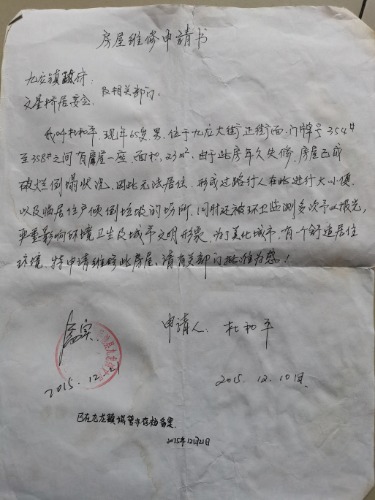 房屋维修申请书
九龙镇政府.
文星桥居委会. 及相关部门.
我叫杜和平 现年65岁,男,位于九龙大街正街面,门牌号354#
至358#之间有房屋一座,面积,27m².由于此房年久失修,房屋已成
破烂倒塌状况,因此无法居住,形成过路行人在此进行大小便,
以及临居住户倾倒垃圾的场所,同时还被环卫监测多次予以曝光,
严重影响环境卫生及城市文明形象,为了美化城市,有一个舒适居住
环境,特申请维修此房屋,请有关部门批准为感!
属实
申请人: 杜和平
2015.12.
2015.12.10日
已在九龙镇城管办存档备案
2015年12月21日